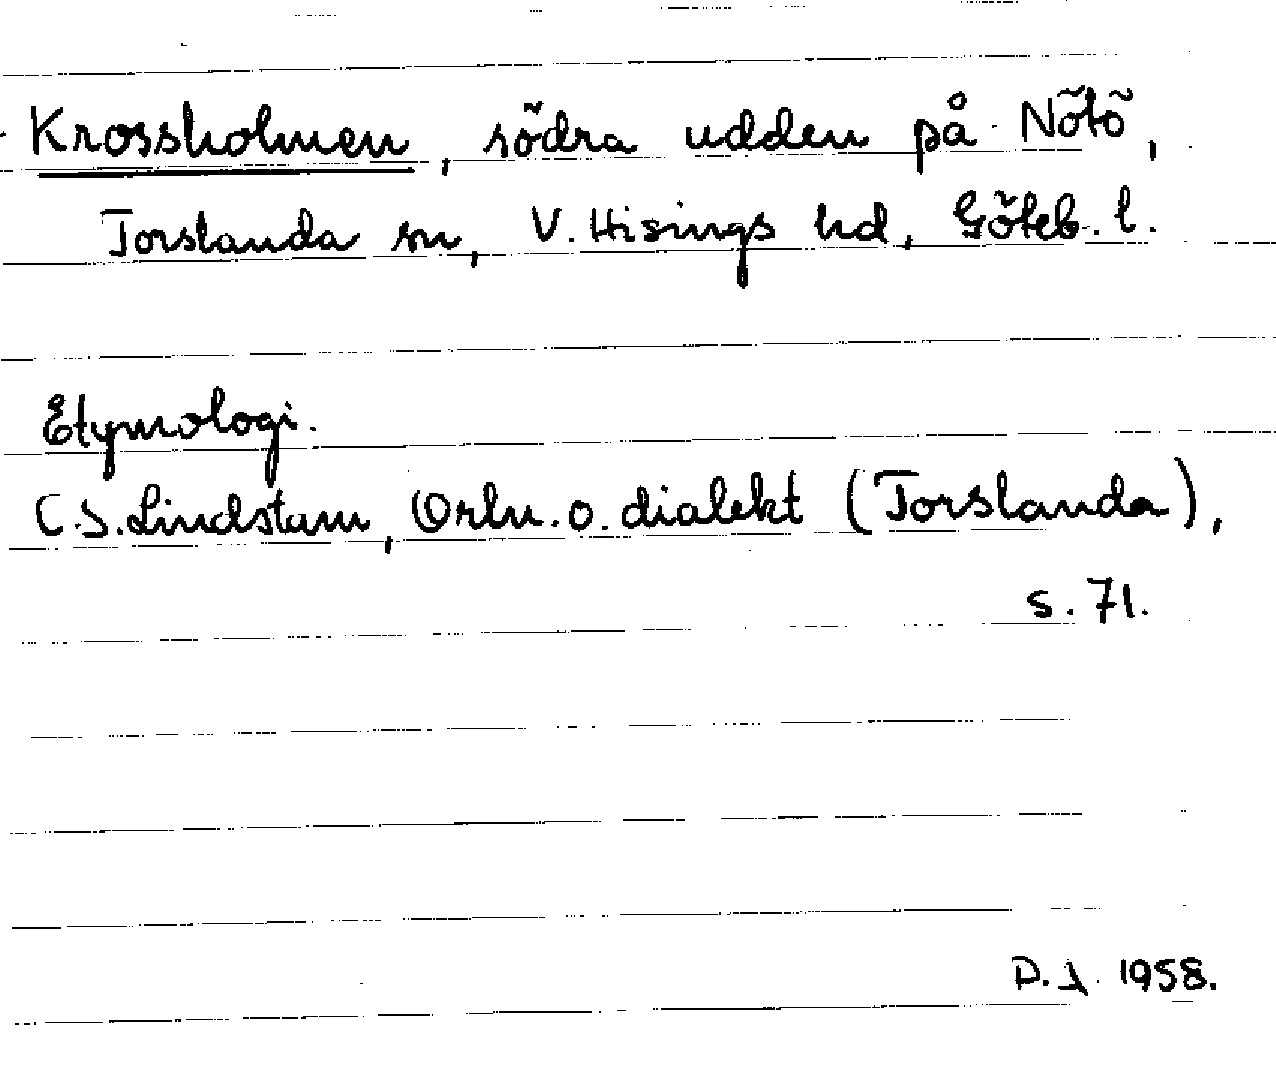 Krossholmen, södra udden på Nötö,
Torslanda sn, V. Hisings hd, Göteb. l.
Etymologi.
C.S. Lindstam, Ortn. o. dialekt (Torslanda),
s. 71.
D. J. 1958.